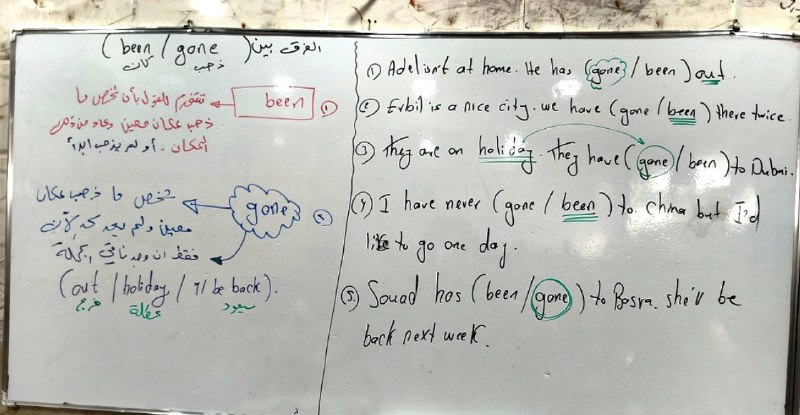 الفرق بين (been / gone)
ذهب كان
① been نستخدم للقول بأن شخص ما
ذهب بمكان معين وعاد من ذلك
المكان. أو لم يذهب ابداً
② gone شخص ما ذهب بمكان
معين ولم يعد لحد الآن
فقط ان وجدنا في الجملة
(out / holiday / 'll be back).
خرج عطلة سيعود
① Adel isn't at home. He has (gone / been) out.
② Erbil is a nice city. we have (gone / been) there twice.
③ They are on holiday. They have (gone / been) to Dubai.
④ I have never (gone / been) to china but I'd
like to go one day.
⑤ Souad has (been / gone) to Basra. she'll be
back next week.